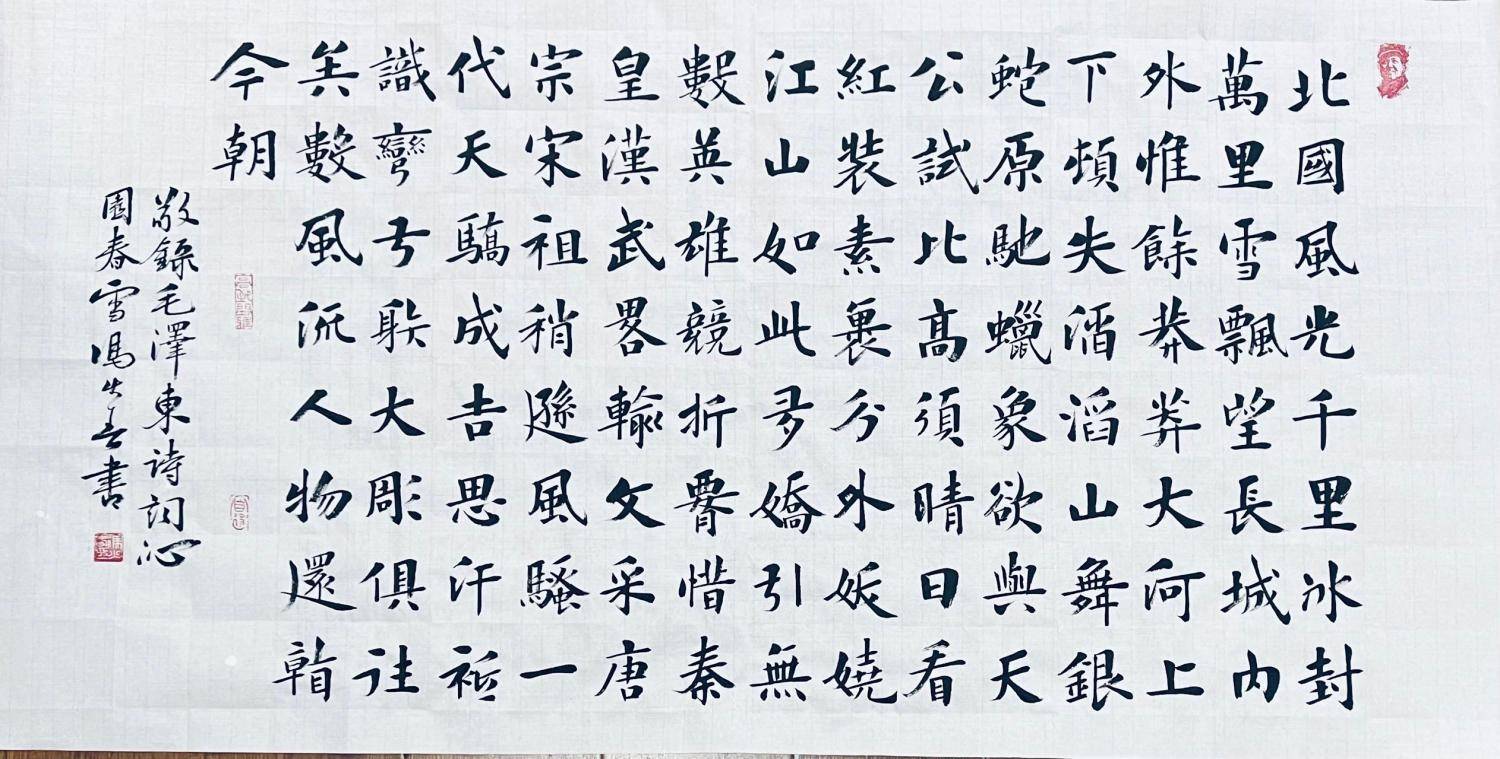 北國風光千里冰封
萬里雪飄望長城內
外惟餘莽莽大河上
下頓失滔滔山舞銀
蛇原馳蠟象欲與天
公試比高須晴日看
紅裝素裹分外妖嬈
江山如此多嬌引無
數英雄競折腰惜秦
皇漢武畧輸文采唐
宗宋祖稍遜風騷一
代天驕成吉思汗祗
識彎弓䠶大彫俱往
矣數風流人物還看
今朝
敬錄毛澤東詩詞沁
園春雪馮書